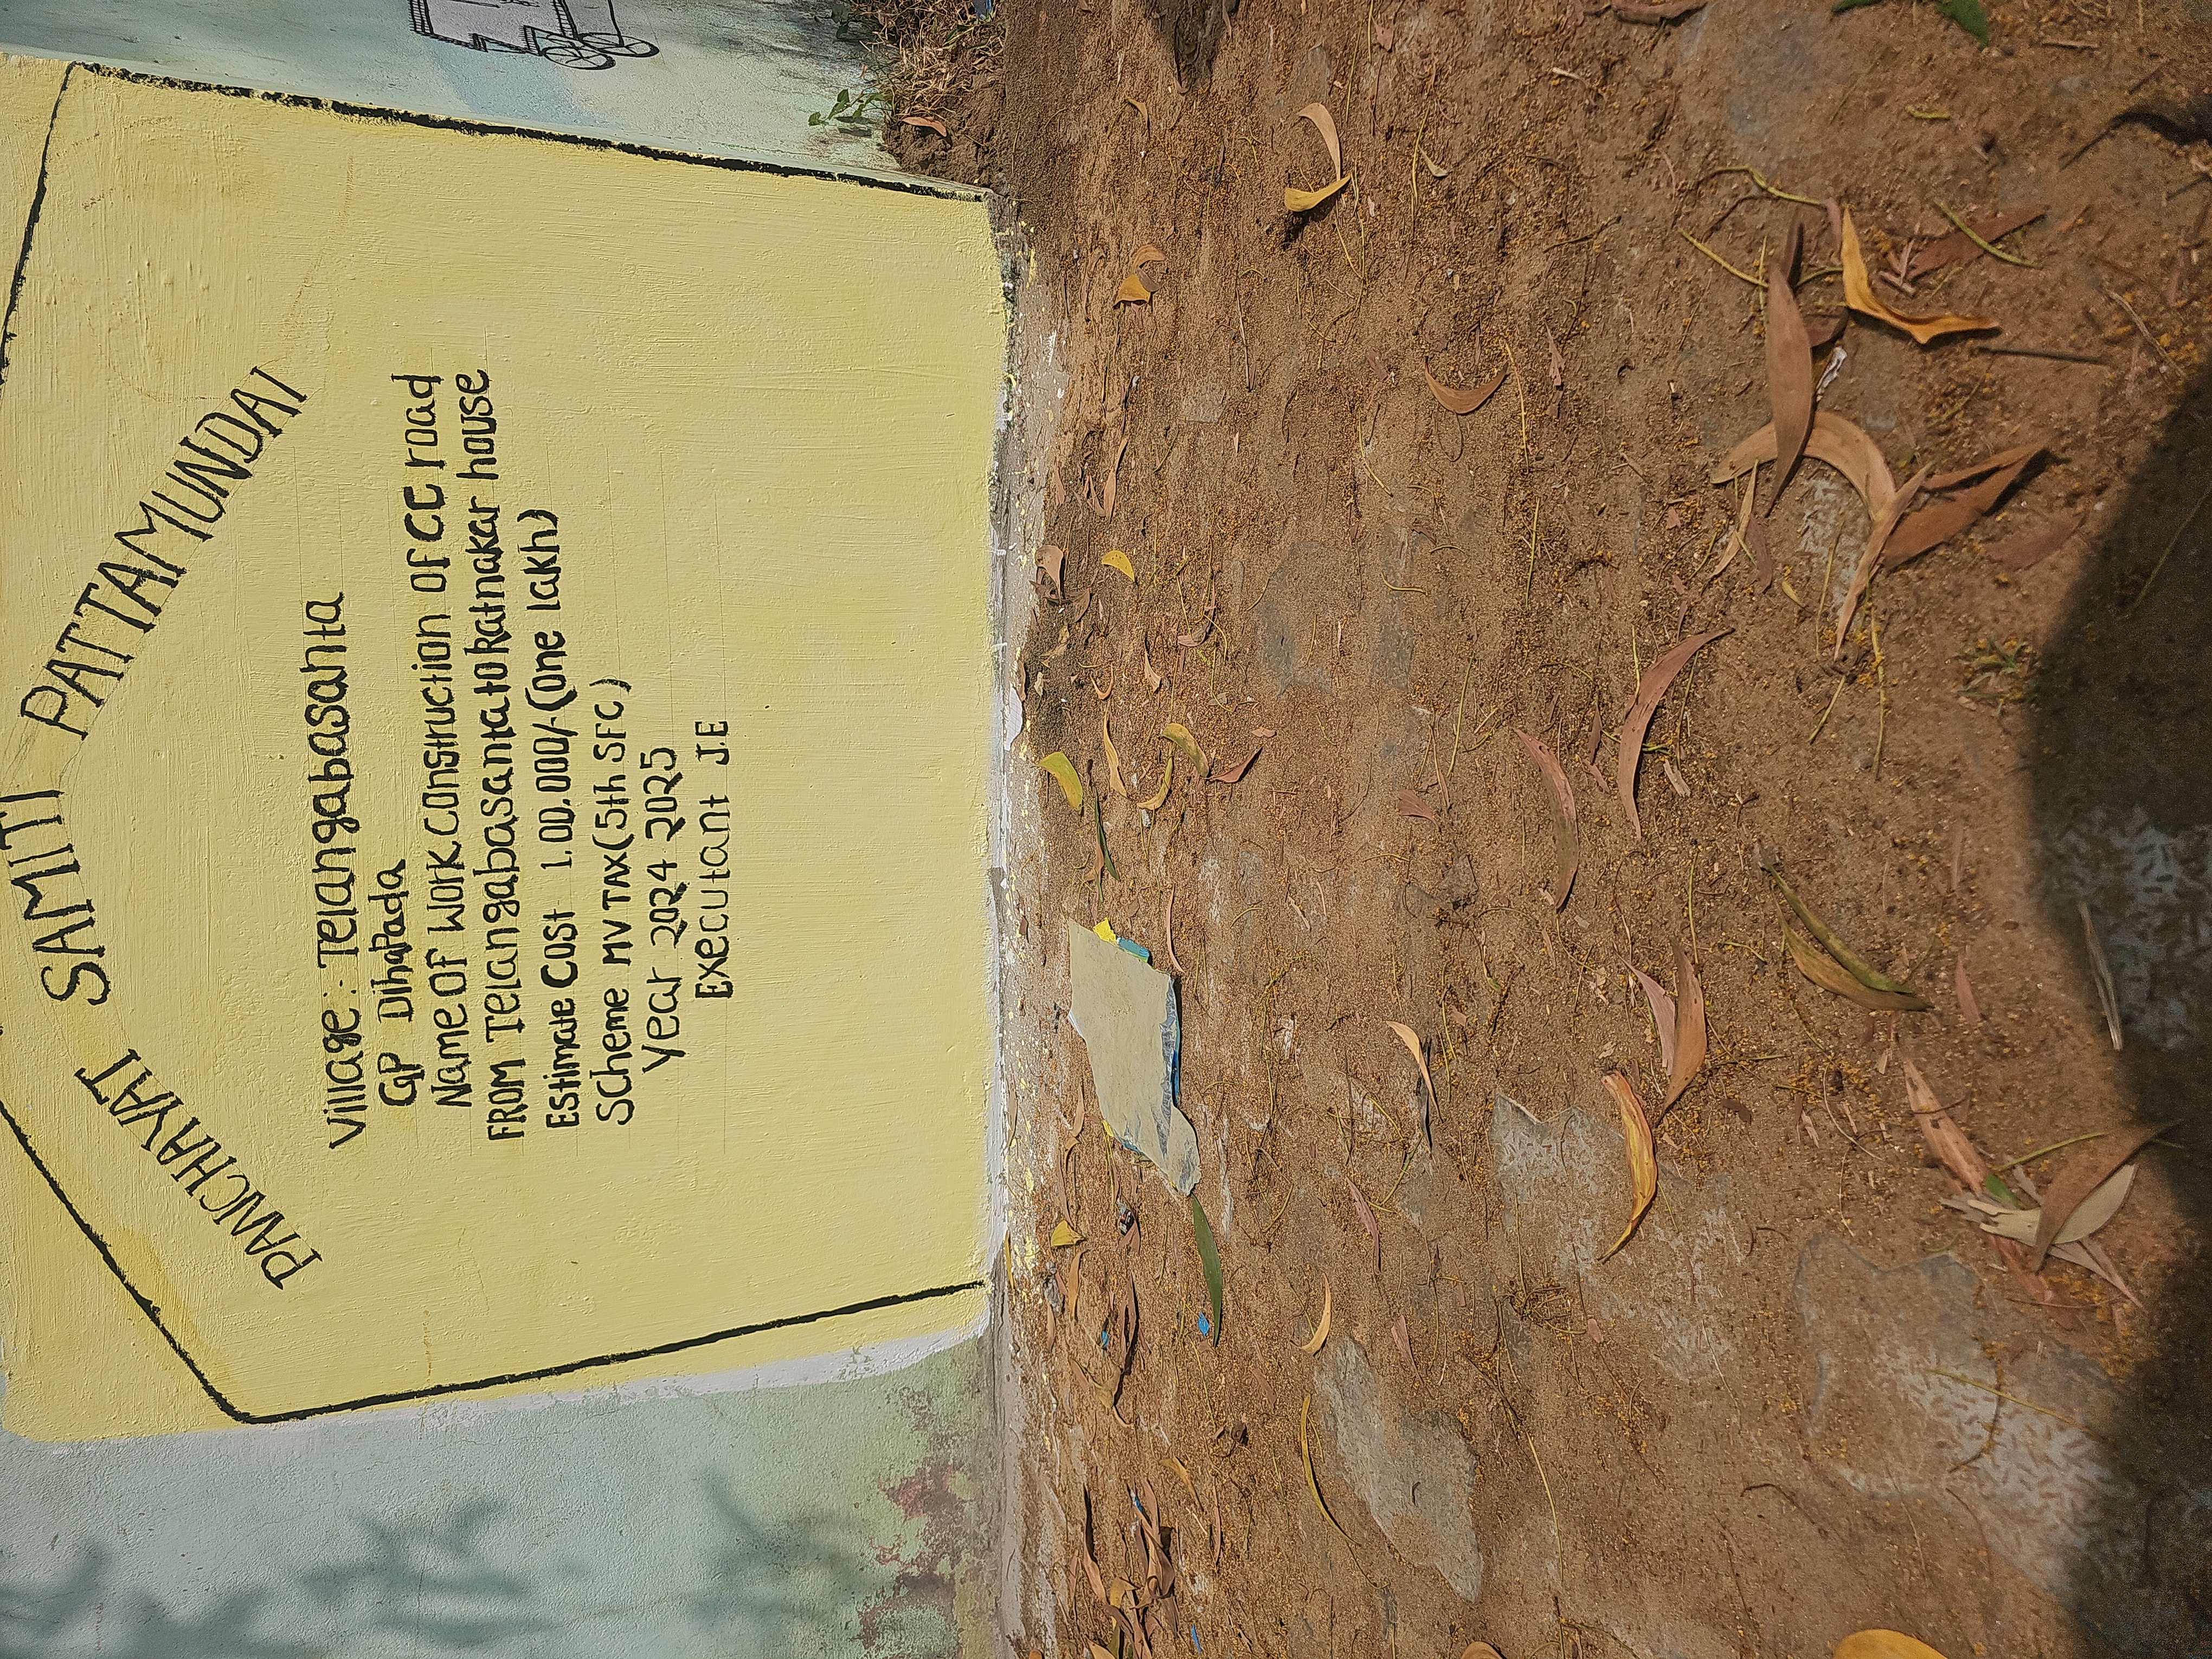 PANCHAYAT SAMITI PATTAMUNDAI
Village :- Telangabasanta
GP Dihapada
Name of Work Construction of CC road
From Telangabasanta to Ratnakar house
Estimate Cost 1.00.000/- (one lakh)
Scheme MV TAX (5th SFC)
Year 2024 2025
Executant J.E